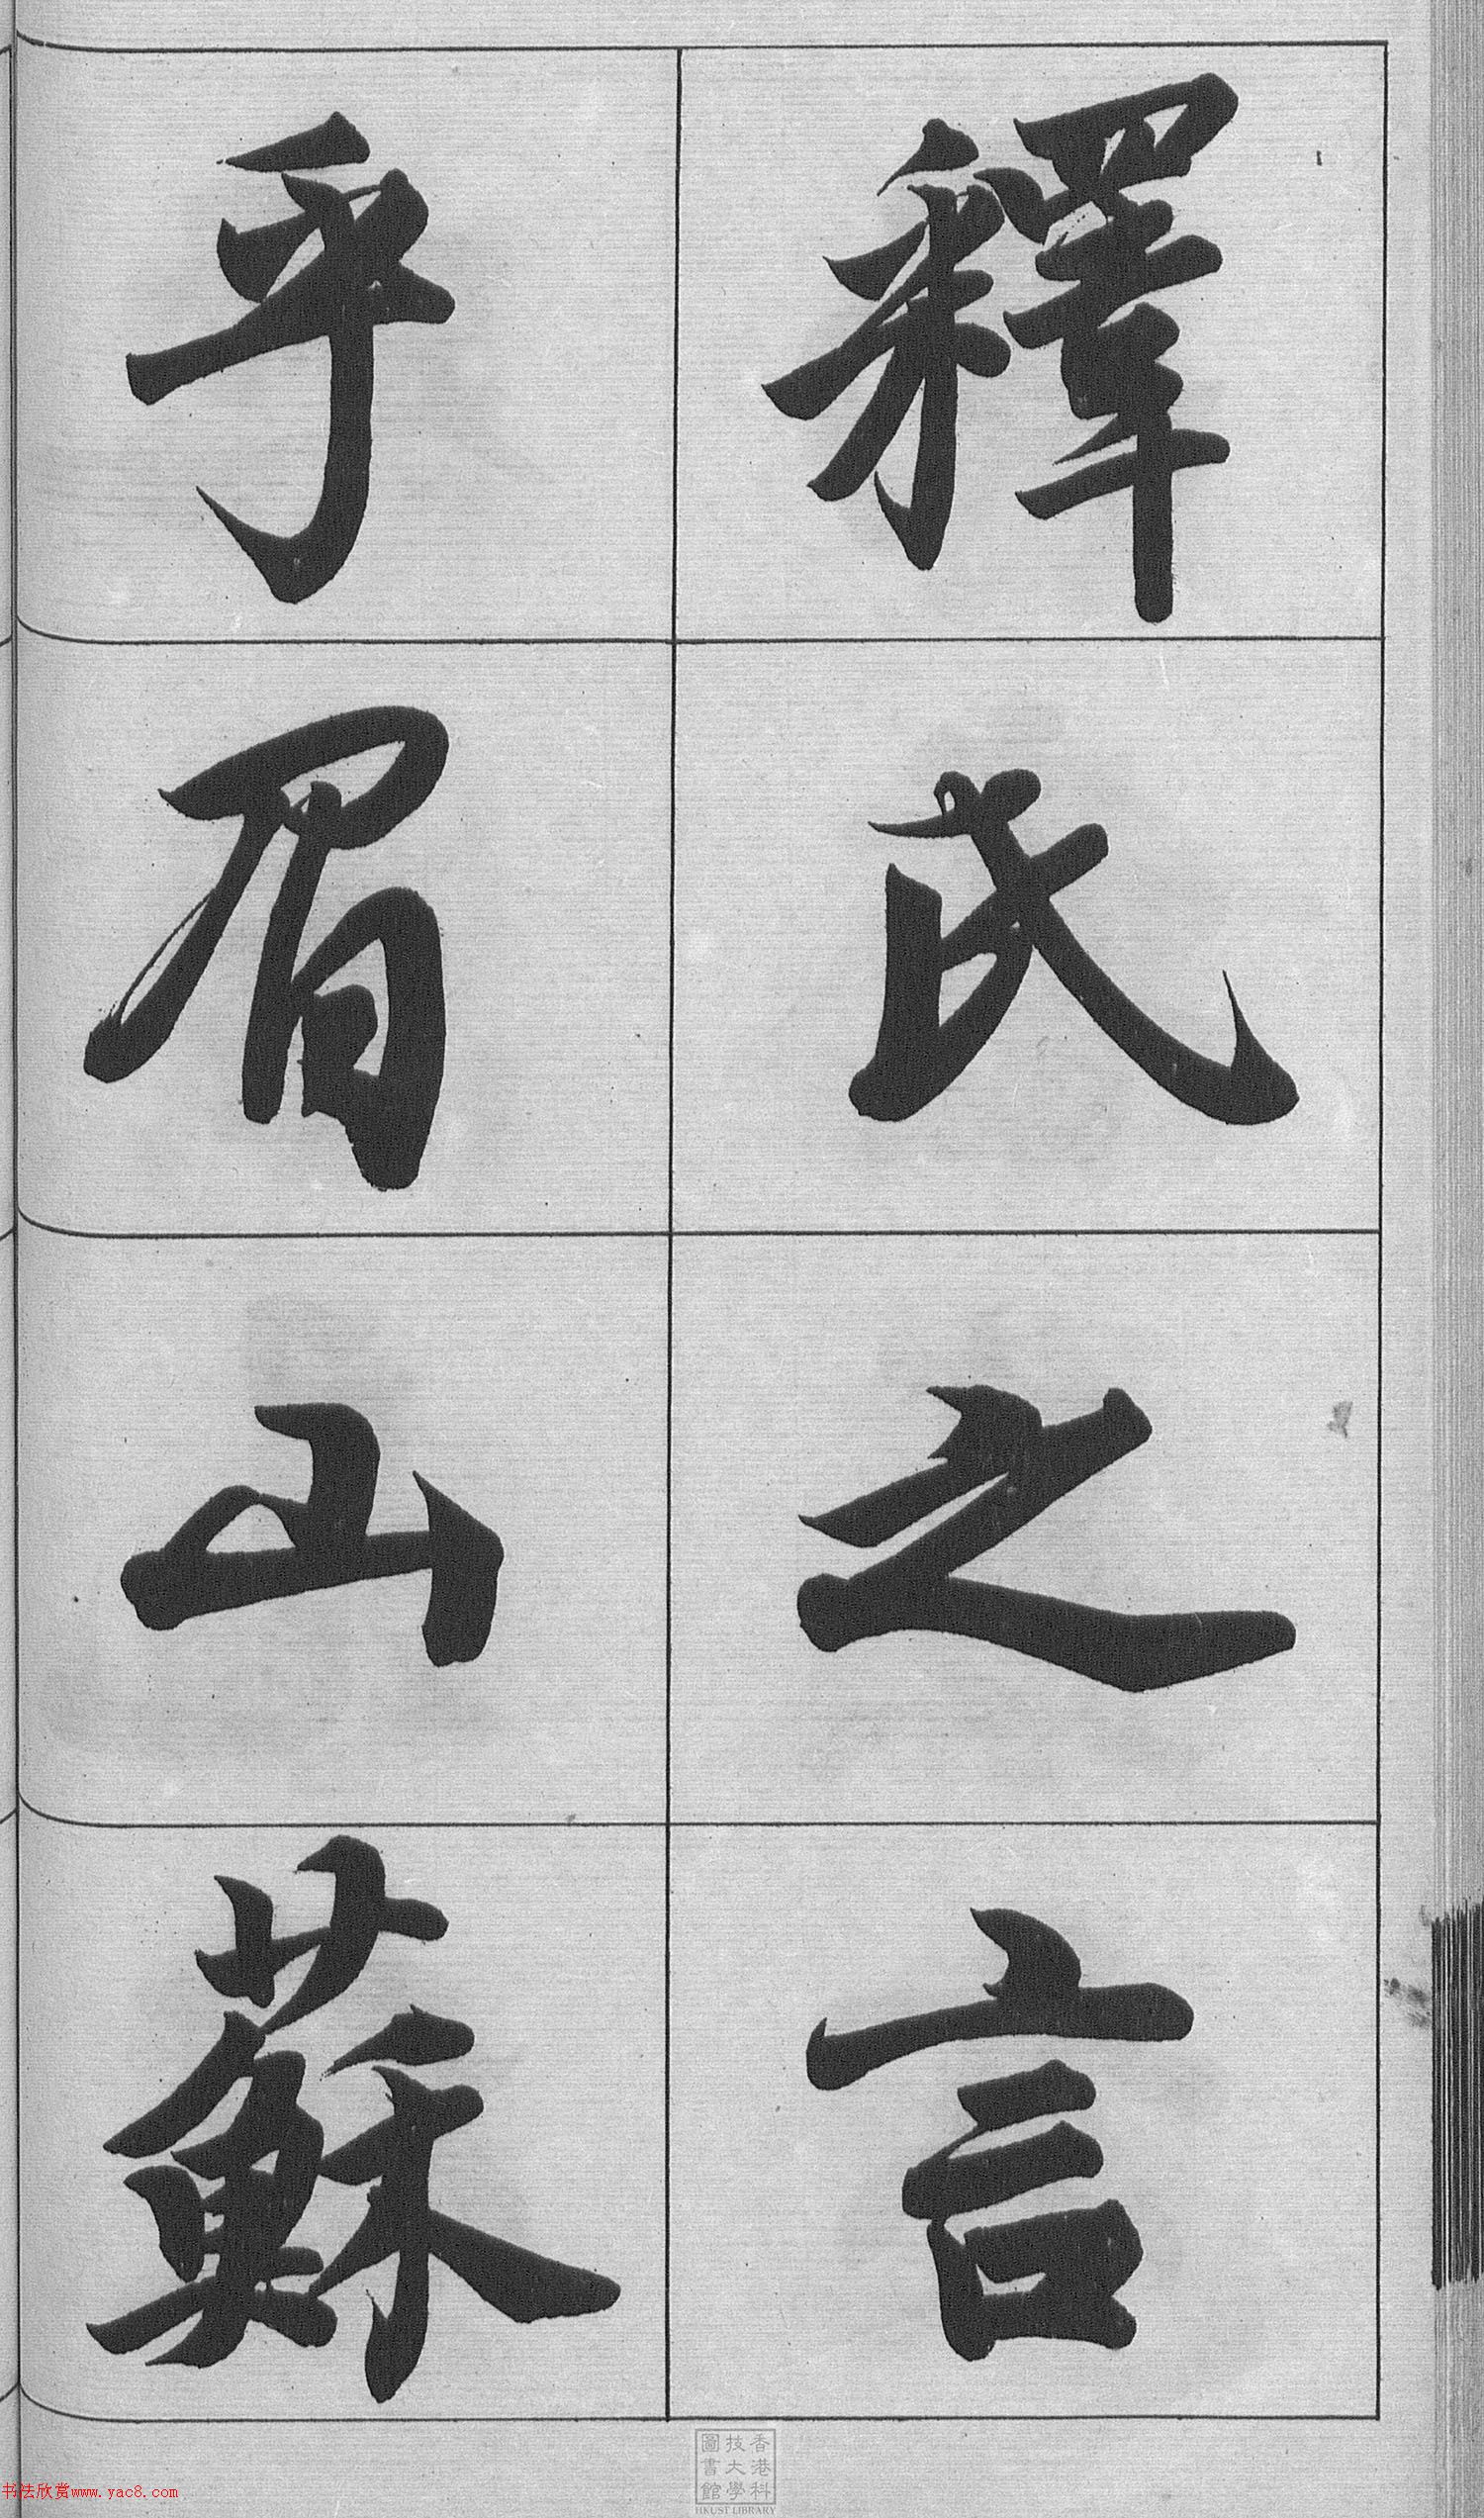 釋氏之言
乎眉山蘇
香港科
技大學
圖書館
HKUST LIBRARY
书法欣赏www.yac8.com